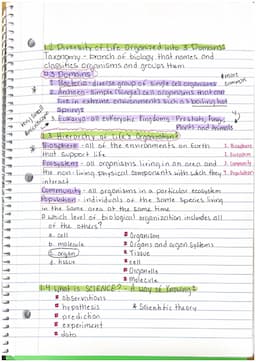 1.2 Diversity of Life Organized into 3 Domains
Taxonomy - branch of biology that names and
classifies organisms and groups them
3 Domains
1. Bacteria - diverse group of single cell organisms
* most common
2. Archaea - simple (single) cell organisms that can
live in extreme environments such as boiling hot
springs
3. Eukarya - all eukaryotic
Plants and Animals
1.3 Hierarchy of Life's Organization
Biosphere - all of the environments on Earth
that support life
1. Biosphere
2. Ecosystem
Ecosystem - all organisms living in an area and
3. Community
the non-living physical components with which they
interact
Community - all organisms in a particular ecosystem
Population - individuals of the same species living
in the same area at the same time
which level of biological organization includes all
of the others?
a. cell
b. molecule
c. organ
d. tissue
Organism
Organs and organ systems
Tissue
cell
Organelle
Molecule
1.4 What is SCIENCE? - A way of knowing
observations
hypothesis
* Scientific theory
prediction
experiment
data